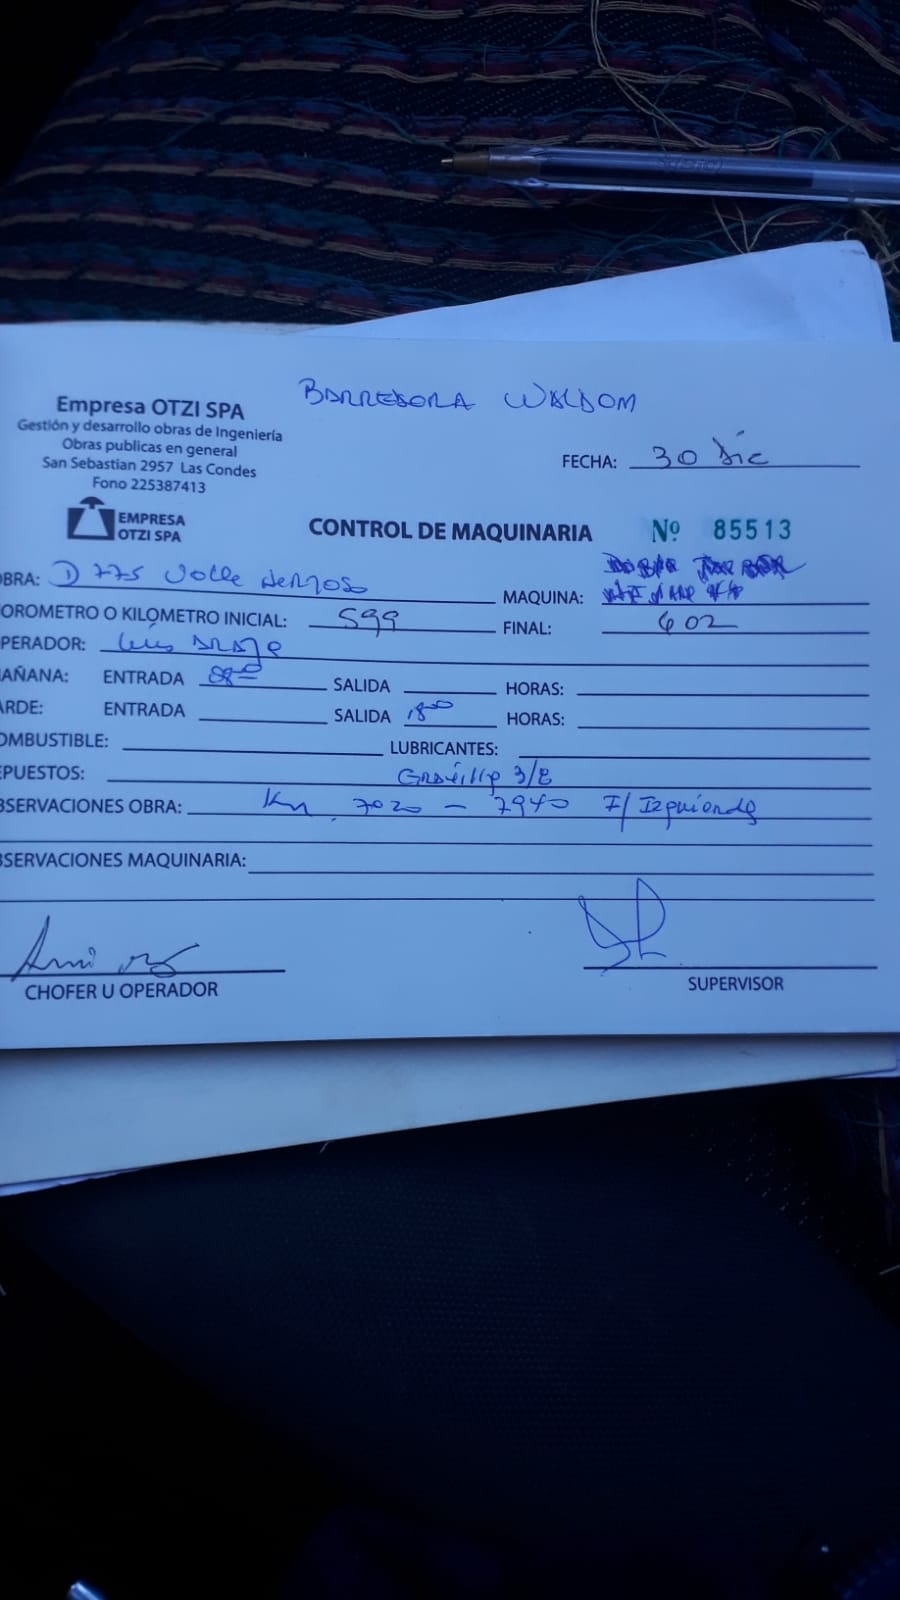 BARREDORA WALDOM
Empresa OTZI SPA
Gestión y desarrollo obras de Ingeniería
Obras publicas en general
San Sebastian 2957 Las Condes
Fono 225387413
EMPRESA
OTZI SPA
FECHA: 30 Dic
CONTROL DE MAQUINARIA Nº 85513
OBRA: D 775 Valle Hermoso
MAQUINA:
OROMETRO O KILOMETRO INICIAL: 599 FINAL: 602
PERADOR: Luis
AÑANA: ENTRADA 08:00 SALIDA HORAS:
ARDE: ENTRADA SALIDA 18:00 HORAS:
OMBUSTIBLE: LUBRICANTES:
EPUESTOS: Gravilla 3/8
BSERVACIONES OBRA: Km 7020 - 7940 F/ Izquierda
BSERVACIONES MAQUINARIA:
CHOFER U OPERADOR
SUPERVISOR